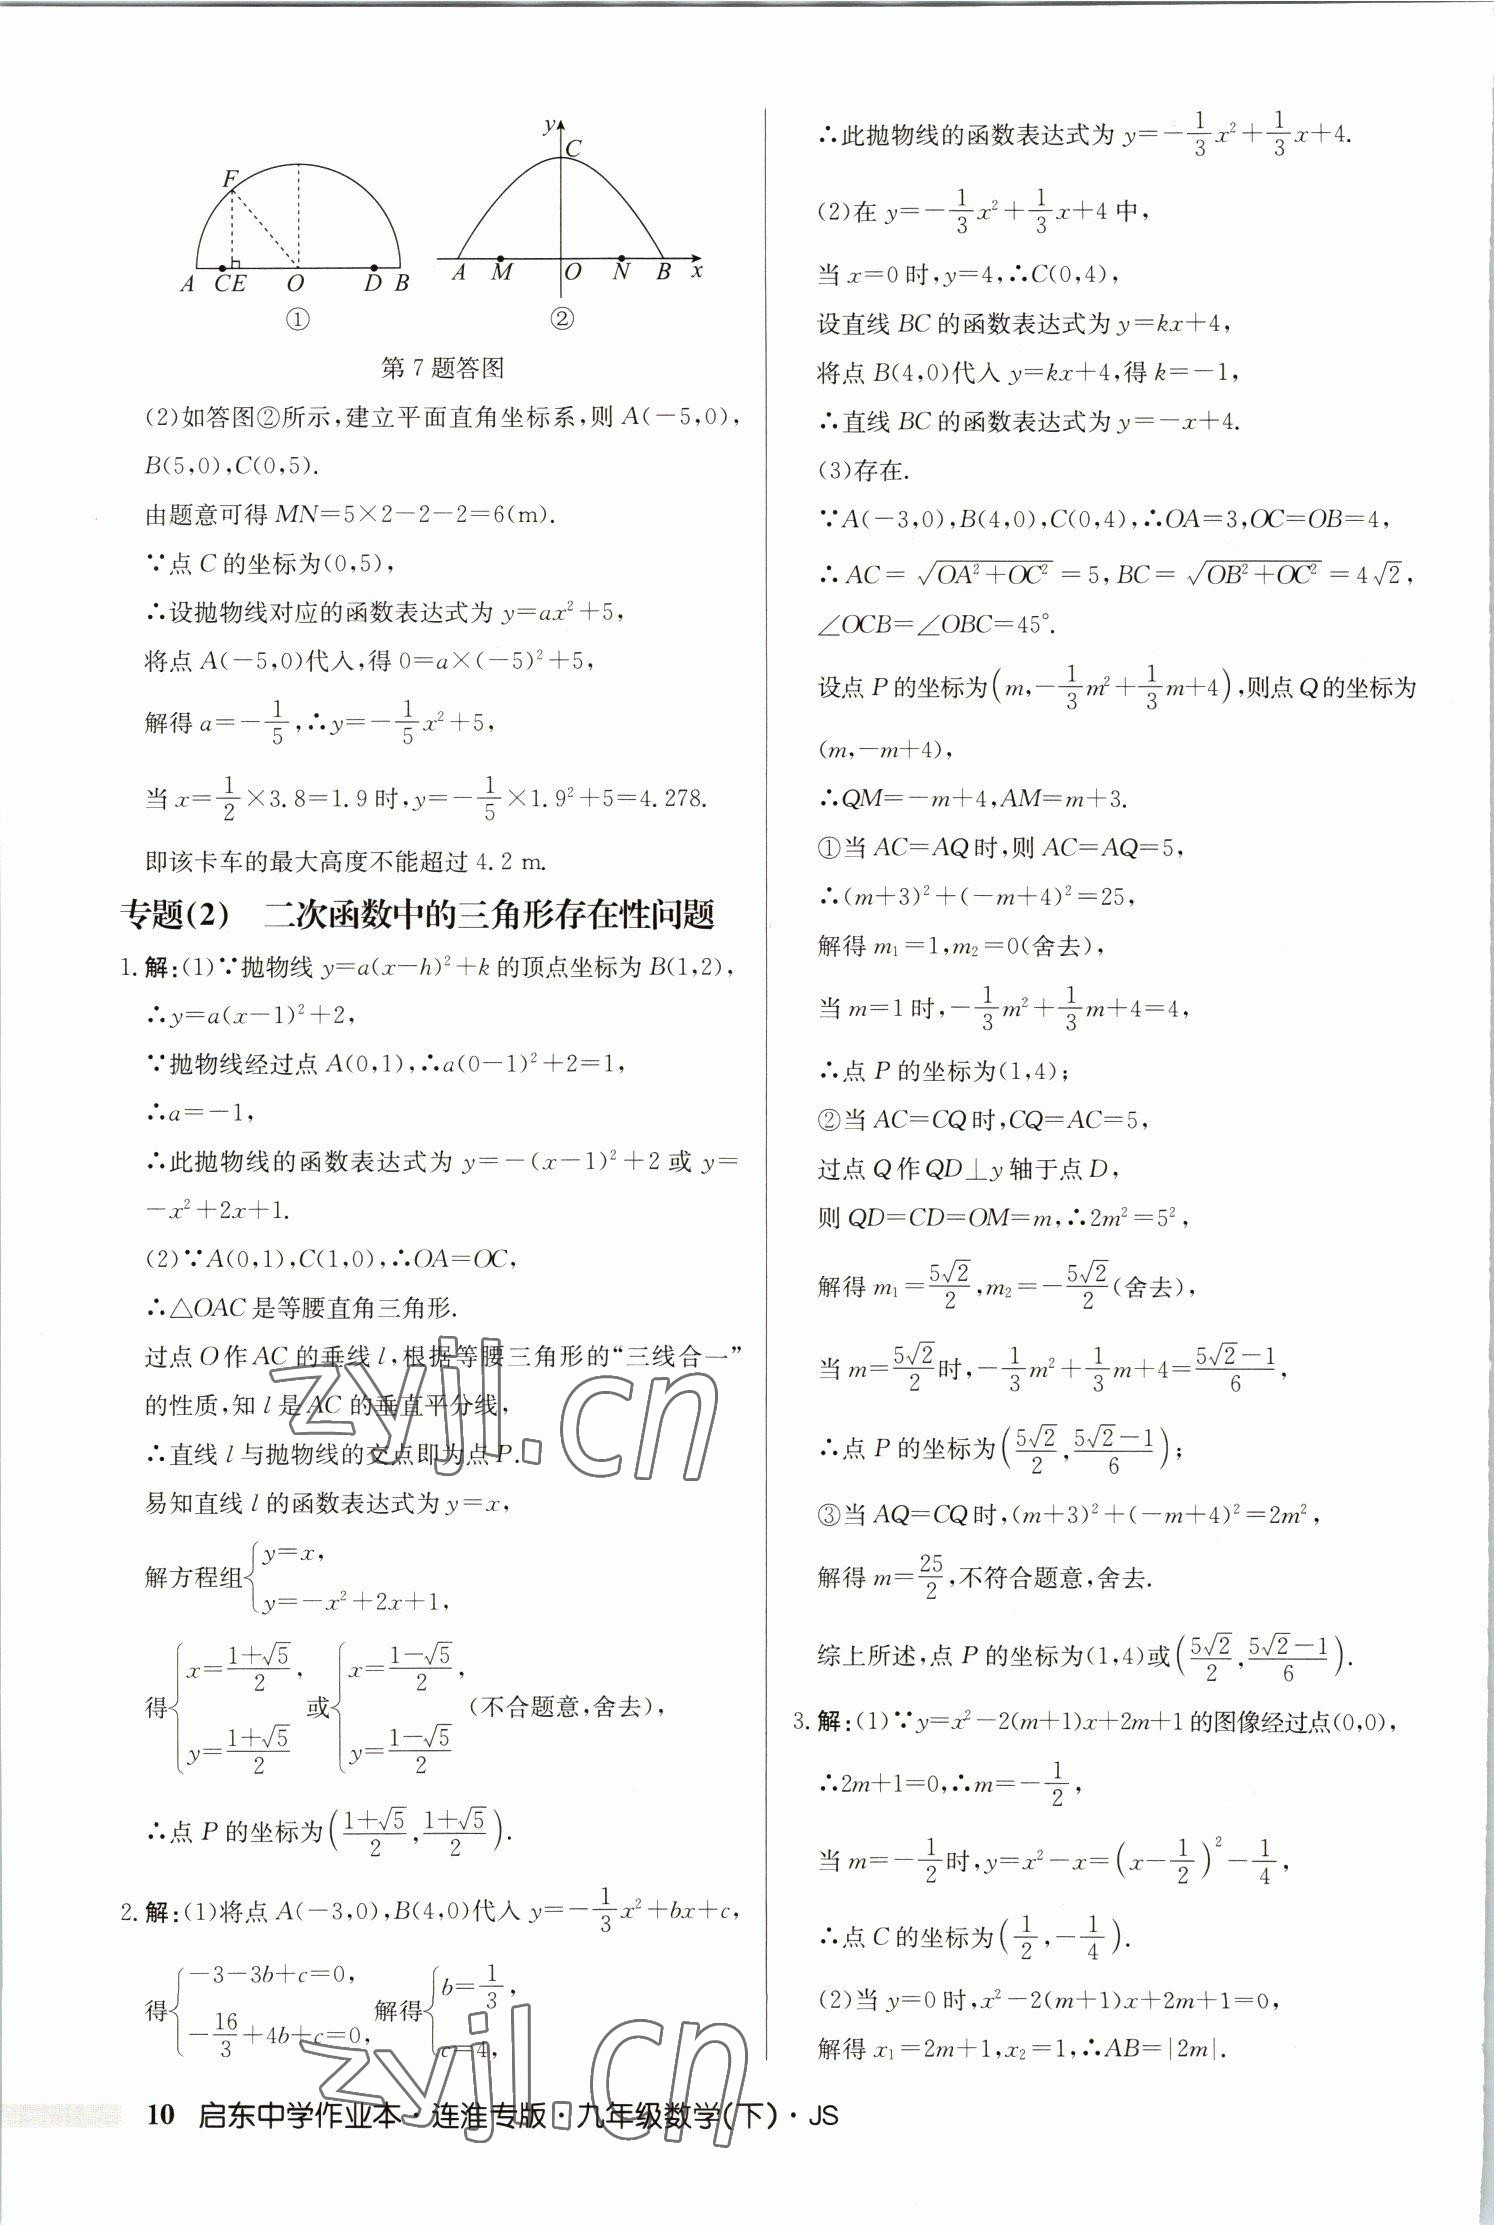 F
A CE O D B
①
y
C
A M O N B x
②
第 7 题答图
(2)如答图②所示,建立平面直角坐标系,则 A(-5,0),
B(5,0),C(0,5).
由题意可得 MN=5×2-2-2=6(m).
∵点 C 的坐标为(0,5),
∴设抛物线对应的函数表达式为 y=ax²+5,
将点 A(-5,0)代入,得 0=a×(-5)²+5,
解得 a=-1/5,∴y=-1/5x²+5,
当 x=1/2×3.8=1.9 时,y=-1/5×1.9²+5=4.278.
即该卡车的最大高度不能超过 4.2 m.
专题(2) 二次函数中的三角形存在性问题
1. 解:(1)∵抛物线 y=a(x-h)²+k 的顶点坐标为 B(1,2),
∴y=a(x-1)²+2,
∵抛物线经过点 A(0,1),∴a(0-1)²+2=1,
∴a=-1,
∴此抛物线的函数表达式为 y=-(x-1)²+2 或 y=
-x²+2x+1.
(2)∵A(0,1),C(1,0),∴OA=OC,
∴△OAC 是等腰直角三角形.
过点 O 作 AC 的垂线 l,根据等腰三角形的“三线合一”
的性质,知 l 是 AC 的垂直平分线,
∴直线 l 与抛物线的交点即为点 P.
易知直线 l 的函数表达式为 y=x,
解方程组{y=x,
y=-x²+2x+1,
得{x=(1+√5)/2, y=(1+√5)/2 或{x=(1-√5)/2, y=(1-√5)/2 (不合题意,舍去),
∴点 P 的坐标为((1+√5)/2,(1+√5)/2).
2. 解:(1)将点 A(-3,0),B(4,0)代入 y=-1/3x²+bx+c,
得{-3-3b+c=0, -16/3+4b+c=0, 解得{b=1/3, c=4,
∴此抛物线的函数表达式为 y=-1/3x²+1/3x+4.
(2)在 y=-1/3x²+1/3x+4 中,
当 x=0 时,y=4,∴C(0,4),
设直线 BC 的函数表达式为 y=kx+4,
将点 B(4,0)代入 y=kx+4,得 k=-1,
∴直线 BC 的函数表达式为 y=-x+4.
(3)存在.
∵A(-3,0),B(4,0),C(0,4),∴OA=3,OC=OB=4,
∴AC=√(OA²+OC²)=5,BC=√(OB²+OC²)=4√2,
∠OCB=∠OBC=45°.
设点 P 的坐标为(m,-1/3m²+1/3m+4),则点 Q 的坐标为
(m,-m+4),
∴QM=-m+4,AM=m+3.
①当 AC=AQ 时,则 AC=AQ=5,
∴(m+3)²+(-m+4)²=25,
解得 m₁=1,m₂=0(舍去),
当 m=1 时,-1/3m²+1/3m+4=4,
∴点 P 的坐标为(1,4);
②当 AC=CQ 时,CQ=AC=5,
过点 Q 作 QD⊥y 轴于点 D,
则 QD=CD=OM=m,∴2m²=5²,
解得 m₁=5√2/2,m₂=-5√2/2(舍去),
当 m=5√2/2时,-1/3m²+1/3m+4=(5√2-1)/6,
∴点 P 的坐标为(5√2/2,(5√2-1)/6);
③当 AQ=CQ 时,(m+3)²+(-m+4)²=2m²,
解得 m=25/2,不符合题意,舍去.
综上所述,点 P 的坐标为(1,4)或(5√2/2,(5√2-1)/6).
3. 解:(1)∵y=x²-2(m+1)x+2m+1 的图像经过点(0,0),
∴2m+1=0,∴m=-1/2,
当 m=-1/2时,y=x²-x=(x-1/2)²-1/4,
∴点 C 的坐标为(1/2,-1/4).
(2)当 y=0 时,x²-2(m+1)x+2m+1=0,
解得 x₁=2m+1,x₂=1,∴AB=|2m|.
10 启东中学作业本·连淮专版·九年级数学(下)·JS
zyjl.cn
zyjl.cn